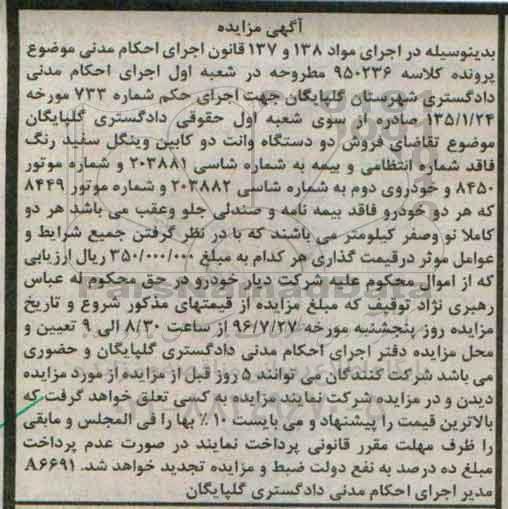 آگهی مزایده
بدینوسیله در اجرای مواد ۱۳۸ و ۱۳۷ قانون اجرای احکام مدنی موضوع
پرونده کلاسه ۹۵۰۲۳۶ مطروحه در شعبه اول اجرای احکام مدنی
دادگستری شهرستان گلپایگان جهت اجرای حکم شماره ۷۳۳ مورخه
۱۳۵/۱/۲۴ صادره از سوی شعبه اول حقوقی دادگستری گلپایگان
موضوع تقاضای فروش دو دستگاه وانت دو کابین وینگل سفید رنگ
فاقد شماره انتظامی و بیمه به شماره شاسی ۲۰۳۸۸۱ و شماره موتور
۸۴۵۰ و خودروی دوم به شماره شاسی ۲۰۳۸۸۲ و شماره موتور ۸۴۴۹
که هر دو خودرو فاقد بیمه نامه و صندلی جلو وعقب می باشد هر دو
کاملا نو وصفر کیلومتر می باشند که با در نظر گرفتن جمیع شرایط و
عوامل موثر درقیمت گذاری هر کدام به مبلغ ۳۵۰/۰۰۰/۰۰۰ ریال ارزیابی
که از اموال محکوم علیه شرکت دیار خودرو در حق محکوم له عباس
رهبری نژاد توقیف که مبلغ مزایده از قیمتهای مذکور شروع و تاریخ
مزایده روز پنجشنبه مورخه ۹۶/۷/۲۷ از ساعت ۸/۳۰ الی ۹ تعیین و
محل مزایده دفتر اجرای احکام مدنی دادگستری گلپایگان و حضوری
می باشد شرکت کنندگان می توانند ۵ روز قبل از مزایده از مورد مزایده
دیدن و در مزایده شرکت نمایند مزایده به کسی تعلق خواهد گرفت که
بالاترین قیمت را پیشنهاد و می بایست ۱۰٪ بها را فی المجلس و مابقی
را ظرف مهلت مقرر قانونی پرداخت نمایند در صورت عدم پرداخت
مبلغ ده درصد به نفع دولت ضبط و مزایده تجدید خواهد شد. ۸۶۶۹۱
مدیر اجرای احکام مدنی دادگستری گلپایگان